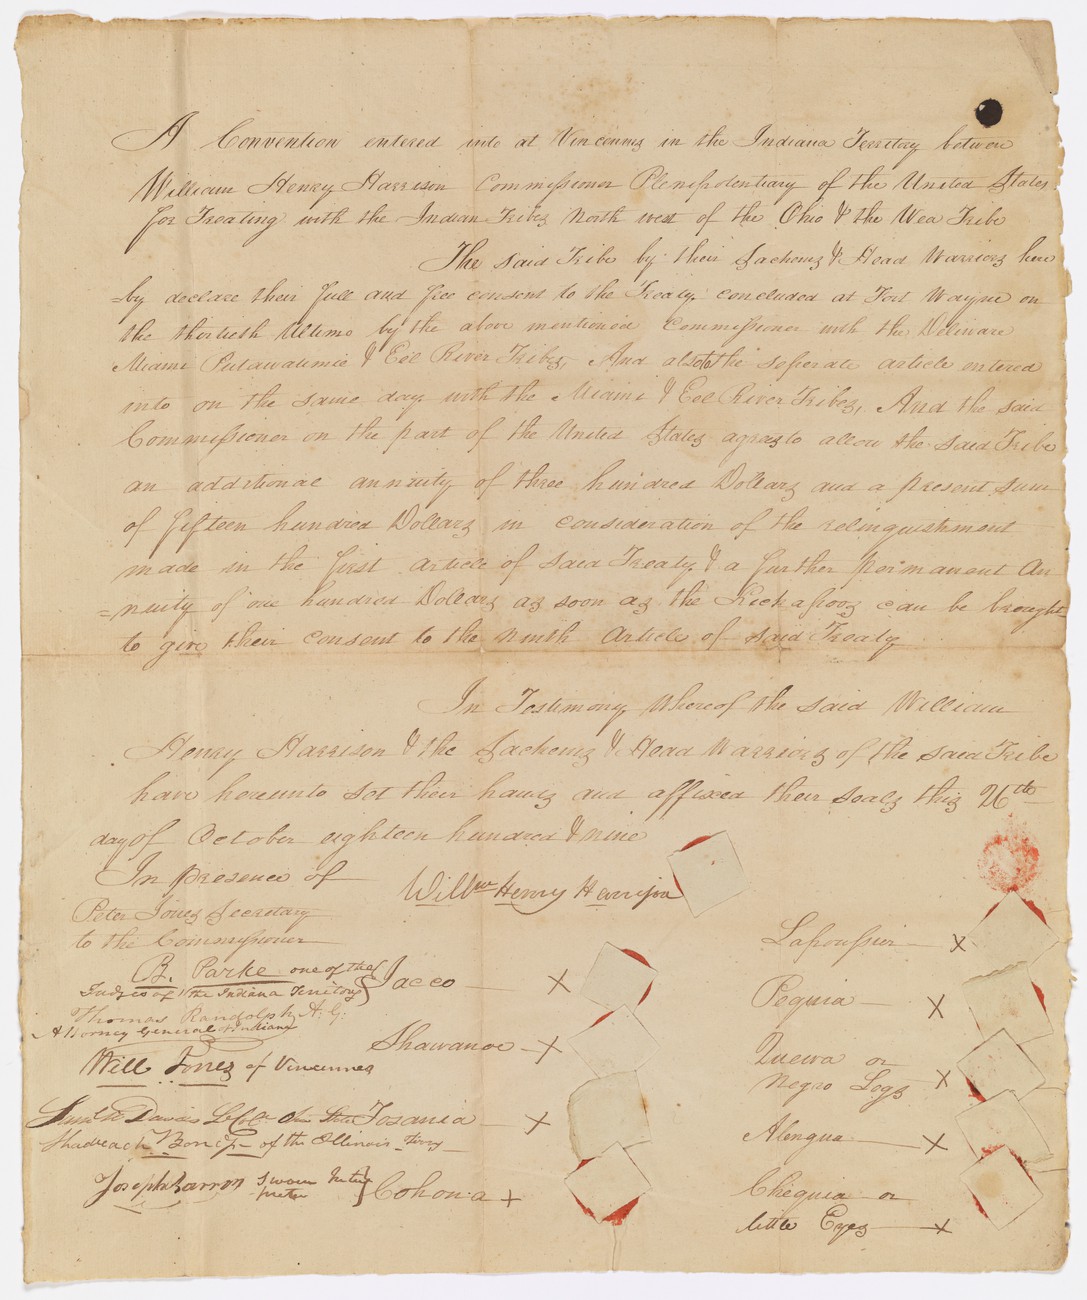 A Convention entered into at Vincennes in the Indiana Territory between
William Henry Harrison Commissioner Plenipotentiary of the United States
for Treating with the Indian Tribes North west of the Ohio & the Wea Tribe
The said Tribe by their Sachems & Head Warriors here
by declare their full and free consent to the Treaty concluded at Fort Wayne on
the thirtieth Ultimo by the above mentioned Commissioner with the Deliware
Miami Putawatimie & Eel River Tribes, And also to the seperate article entered
into on the same day with the Miami & Eel River Tribes, And the said
Commissioner on the part of the United States agrees to allow the said Tribe
an additional annuity of three hundred Dollars and a present sum
of fifteen hundred Dollars in consideration of the relinquishment
made in the first article of said Treaty & a further permanent An
=nuity of one hundred Dollars as soon as the Kickapoos can be brought
to give their consent to the ninth Article of said Treaty
In Testimony Whereof the said William
Henry Harrison & the Sachems & Head Warriors of the said Tribe
have hereunto set their hands and affixed their seals this 26th
day of October eighteen hundred & nine
In presence of
Willm Henry Harrison
Peter Jones Secretary
to the Commissioner
B. Parke one of the
Judges of the Indiana Territory
Thomas Randolph A. G.
Attorney General of Indiana
Will Jones of Vincennes
Shadrach Bond Jr of the Illinois Terry
Joseph Barron sworn Inter
preter
Jacco X
Shawanoe X
Tosania X
Cohona X
Lapoussier X
Pequia X
Quewa or
Negro Legs X
Alengua X
Chequia or
little Eyes X